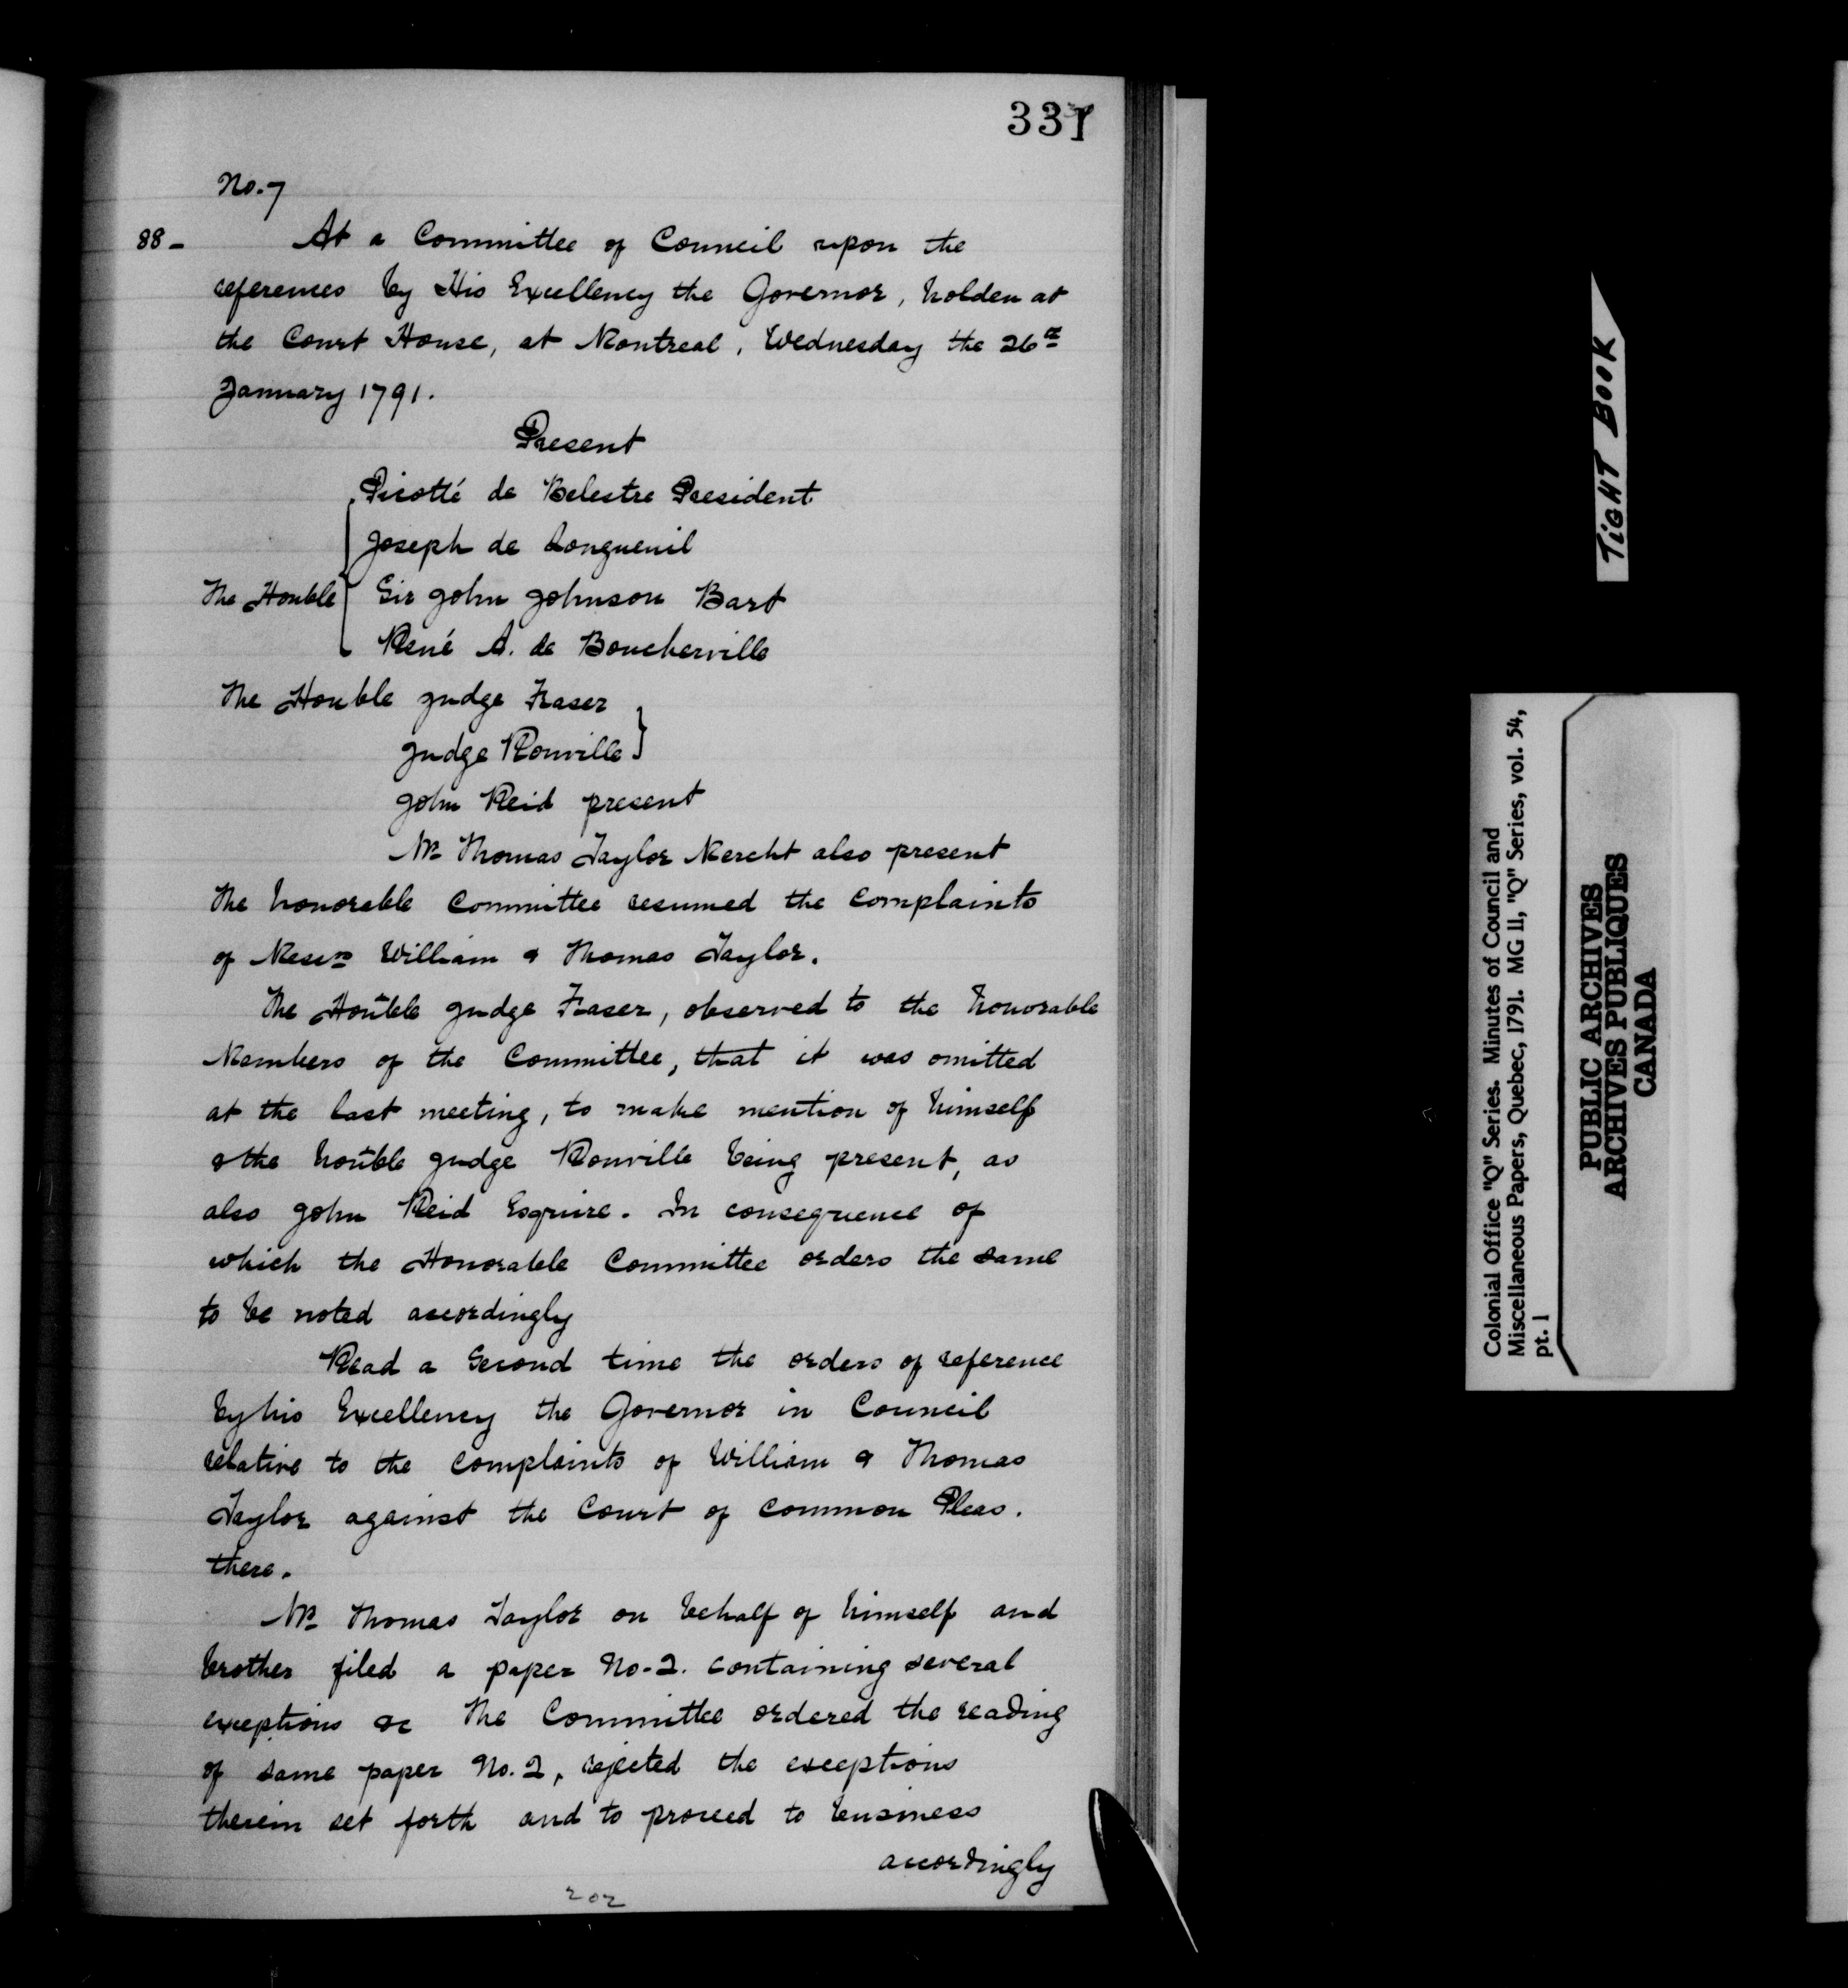 331
No. 7
88 - At a Committee of Council upon the
references by His Excellency the Governor, holden at
the Court House, at Montreal, Wednesday the 26th
January 1791.
Present
Picotté de Belestre President
Joseph de Longueuil
The Honble Sir John Johnson Bart
René A. de Boucherville
The Honble Judge Fraser
Judge Rouville
John Reid present
Mr Thomas Taylor Mercht also present
The honorable Committee resumed the complaints
of Messrs William & Thomas Taylor.
The Honble Judge Fraser, observed to the honorable
Members of the Committee, that it was omitted
at the last meeting, to make mention of himself
& the honble Judge Rouville being present, as
also John Reid Esquire. In consequence of
which the Honorable Committee orders the same
to be noted accordingly
Read a Second time the orders of reference
by his Excellency the Governor in Council
relative to the complaints of William & Thomas
Taylor against the Court of Common Pleas.
there.
Mr Thomas Taylor on behalf of himself and
brother filed a paper No. 2. containing several
exceptions &c The Committee ordered the reading
of same paper No. 2, rejected the exceptions
therein set forth and to proceed to business
accordingly
202
TIGHT BOOK
Colonial Office "Q" Series. Minutes of Council and
Miscellaneous Papers, Quebec, 1791. MG 11, "Q" Series, vol. 54,
pt. 1
PUBLIC ARCHIVES
ARCHIVES PUBLIQUES
CANADA